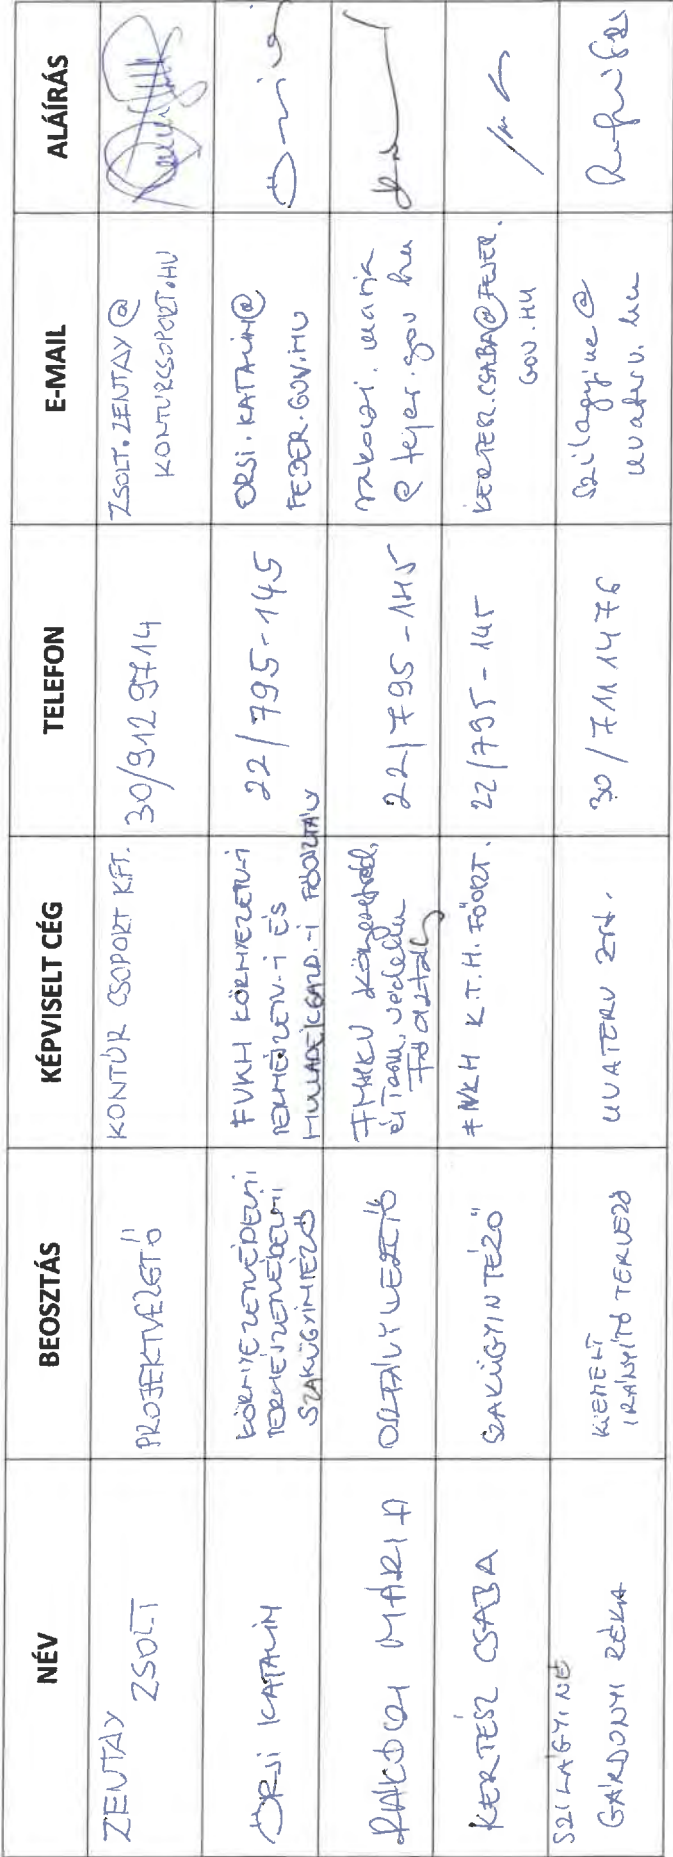 NÉV BEOSZTÁS KÉPVISELT CÉG TELEFON E-MAIL ALÁÍRÁS
ZENTAY
ZSOLT
PROJEKTVEZETŐ
KONTÚR CSOPORT KFT.
30/9129714
ZSOLT.ZENTAY@
KONTURCSOPORT.HU
ŐRSI KATALIN
KÖRNYEZETVÉDELMI
TERMÉSZETVÉDELMI
SZAKÜGYINTÉZŐ
FVKH KÖRNYEZETV-I
TERMÉSZETV-I ÉS
HULLADÉKGAZD.-I FŐOSZTÁLY
22/795-145
ORSI.KATALIN@
FEJER.GOV.HU
RÁKÓCZI MÁRIA
OSZTÁLYVEZETŐ
Főosztály
22/795-145
rakoczi.maria
@fejer.gov.hu
KERTÉSZ CSABA
SZAKÜGYINTÉZŐ
K.T.H. FŐOSZT.
22/795-145
KERTESZ.CSABA@FEJER.
GOV.HU
SZILÁGYINÉ
GÁRDONYI RÉKA
KIEMELT
IRÁNYÍTÓ TERVEZŐ
UVATERV Zrt.
30/7111476
szilagyine@
uvaterv.hu